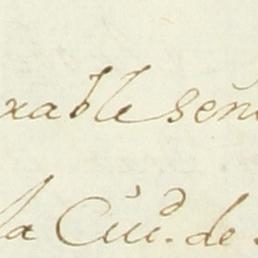 xable señ
la Ciu.d de